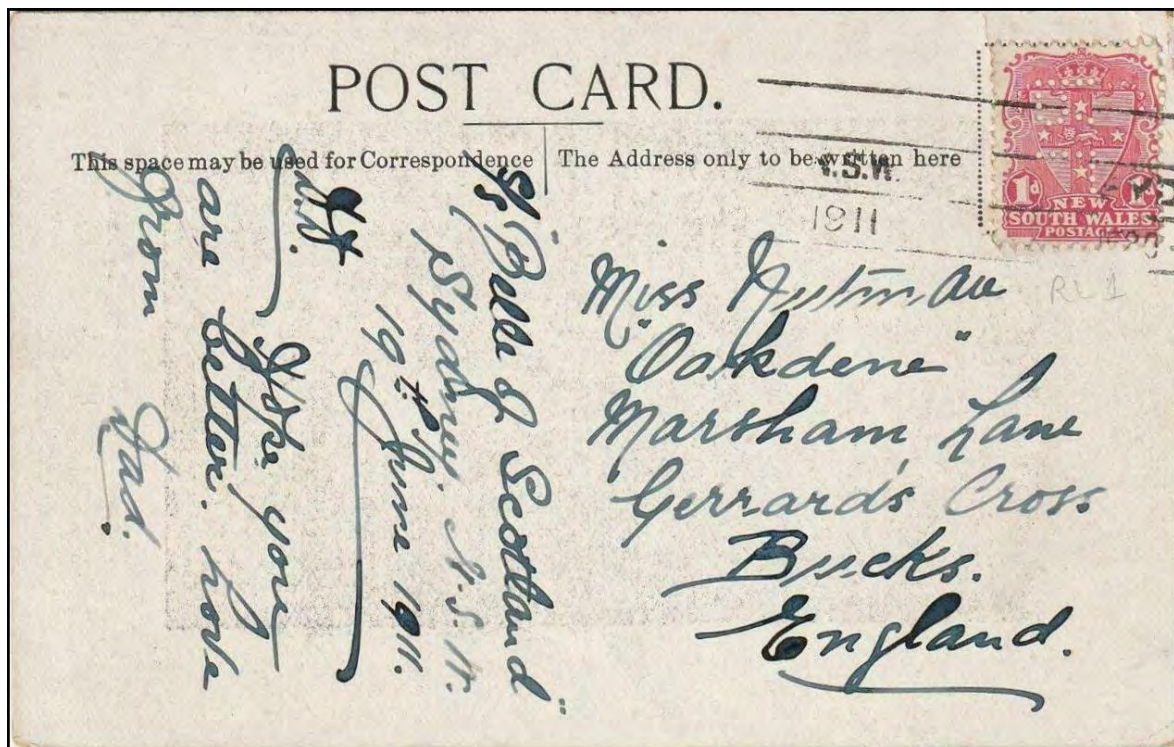 POST CARD.
This space may be used for Correspondence
The Address only to be written here
N.S.W.
1911
1d
NEW
SOUTH WALES
POSTAGE
RL1
S/S "Bells of Scotland"
Sydney. N.S.W.
19th June 1911.
Hope you
are better. Love
From Dad.
Miss
"Oakdene"
Marsham Lane
Gerrards Cross
Bucks.
England.